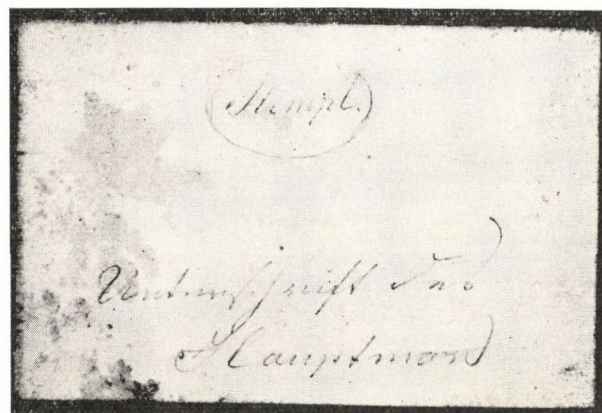 Stempl.
Unterschrift des
Hauptmans